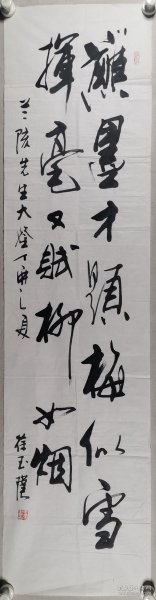 蘸墨才题梅似雪
挥毫又赋柳如烟
兰陵先生大鉴丁酉之夏
徐玉